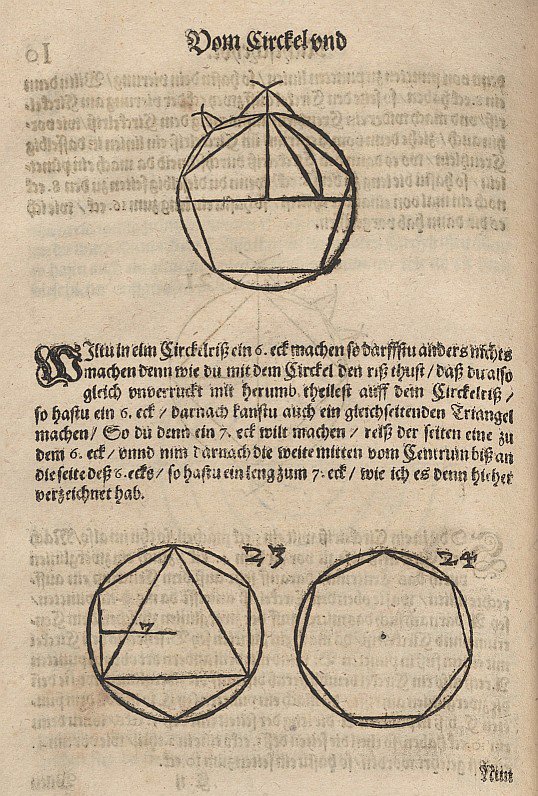 Vom Circkel vnd
WIltu in eim Circkelriß ein 6. eck machen so darffstu anders nichts
machen denn wie du mit dem Circkel den riß thust / daß du also
gleich vnverruckt mit herumb theilest auff dem Circkelriß /
so hastu ein 6. eck / darnach kanstu auch ein gleichseitenden Triangel
machen / So du denn ein 7. eck wilt machen / reiß der seiten eine zu
dem 6. eck / vnnd nim darnach die weite mitten vom Centrum biß an
die seite deß 6. ecks / so hastu ein leng zum 7. eck / wie ich es denn hieher
verzeichnet hab.
23
24
7
Nim